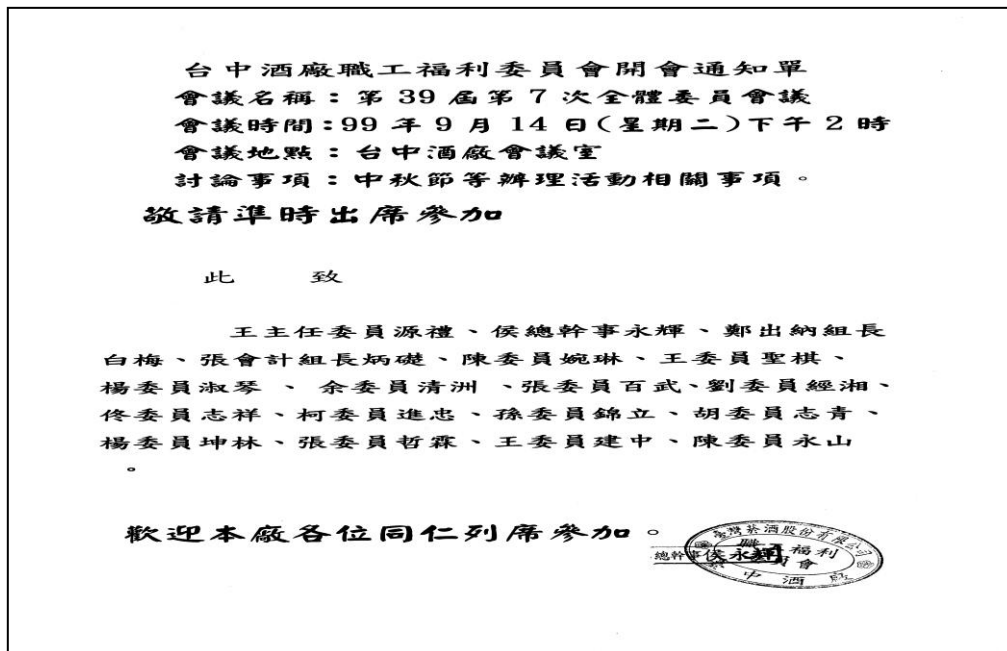 台中酒廠職工福利委員會開會通知單
會議名稱：第 39 屆第 7 次全體委員會議
會議時間：99 年 9 月 14 日(星期二)下午 2 時
會議地點：台中酒廠會議室
討論事項：中秋節等辦理活動相關事項。
敬請準時出席參加
此 致
王主任委員源禮、侯總幹事永輝、鄭出納組長
白梅、張會計組長炳礎、陳委員婉琳、王委員聖棋、
楊委員淑琴 、 余委員清洲 、張委員百武、劉委員經湘、
佟委員志祥、柯委員進忠、孫委員錦立、胡委員志青、
楊委員坤林、張委員哲霖、王委員建中、陳委員永山
。
歡迎本廠各位同仁列席參加。
臺灣菸酒股份有限公司
職 福利
總幹事侯永輝 員會
中酒廠